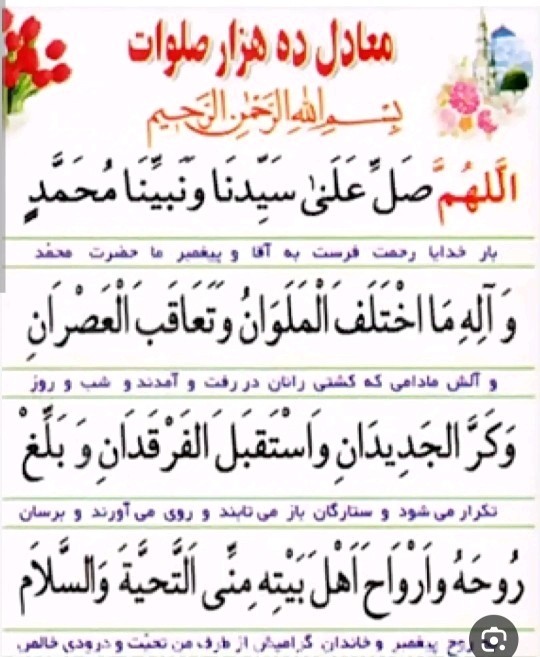 معادل ده هزار صلوات
بِسْمِ اللهِ الرَّحْمٰنِ الرَّحيمِ
اَللّهُمَّ صَلِّ عَلَىٰ سَيِّدِنَا وَنَبِيِّنَا مُحَمَّدٍ
بار خدایا رحمت فرست به آقا و پیغمبر ما حضرت محمّد
وَ آلِهِ مَا اخْتَلَفَ الْمَلَوَانُ وَتَعَاقَبَ الْعَصْرَانِ
و آلش مادامی که کشتی رانان در رفت و آمدند و شب و روز
وَكَرَّ الجَدِيدَانِ وَاسْتَقبَلَ الفَرْقَدَانِ وَ بَلِّغْ
تکرار می شود و ستارگان باز می تابند و روی می آورند و برسان
رُوحَهُ وَاَرْوَاحَ اَهْلِ بَيْتِهِ مِنِّى اَلتَّحيَّةَ وَالسَّلاَم
روح پیغمبر و خاندان گرامیش از طرف من تحیّت و درودی خالص